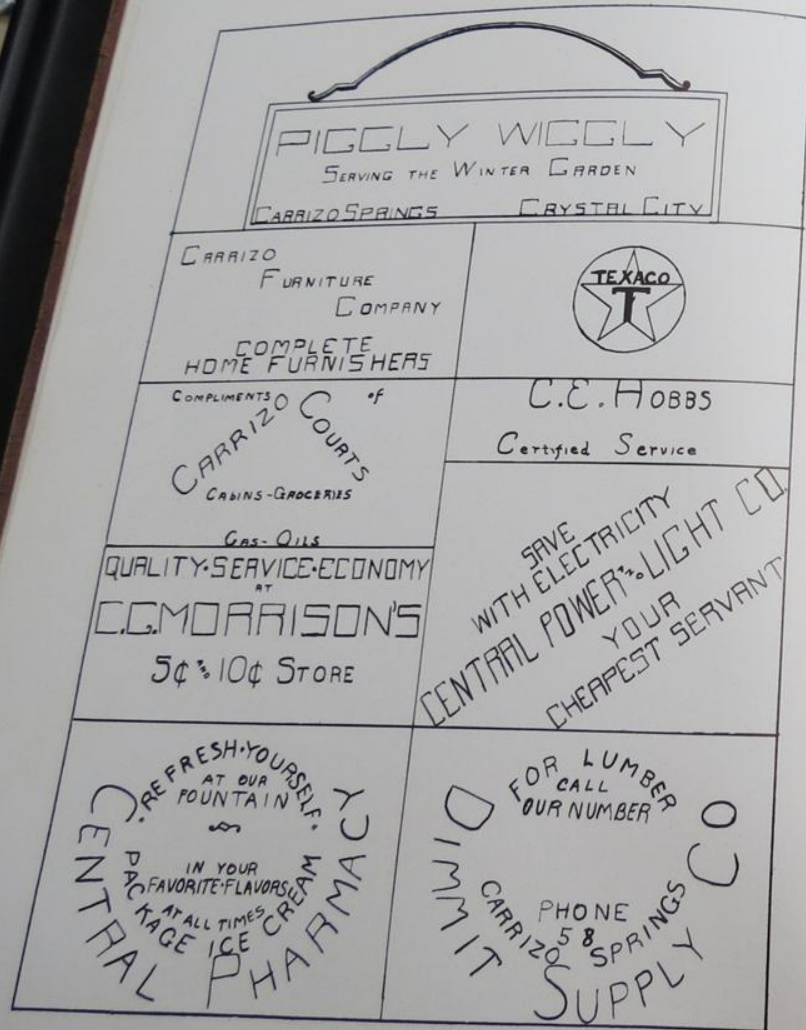 PIGGLY WIGGLY
SERVING THE WINTER GARDEN
CARRIZO SPRINGS CRYSTAL CITY
CARRIZO
FURNITURE
COMPANY
COMPLETE
HOME FURNISHERS
TEXACO
T
COMPLIMENTS of
CARRIZO COURTS
CABINS-GROCERIES
GAS-OILS
C.E. HOBBS
Certified Service
QUALITY·SERVICE·ECONOMY
AT
C.G. MORRISON'S
5¢ AND 10¢ STORE
SAVE
WITH ELECTRICITY
CENTRAL POWER AND LIGHT CO.
YOUR
CHEAPEST SERVANT
·REFRESH·YOURSELF·
AT OUR
FOUNTAIN
IN YOUR
FAVORITE·FLAVORS
AT ALL TIMES
PACKAGE ICE CREAM
CENTRAL PHARMACY
FOR LUMBER
CALL
OUR NUMBER
PHONE
58
CARRIZO SPRINGS
DIMMIT SUPPLY CO